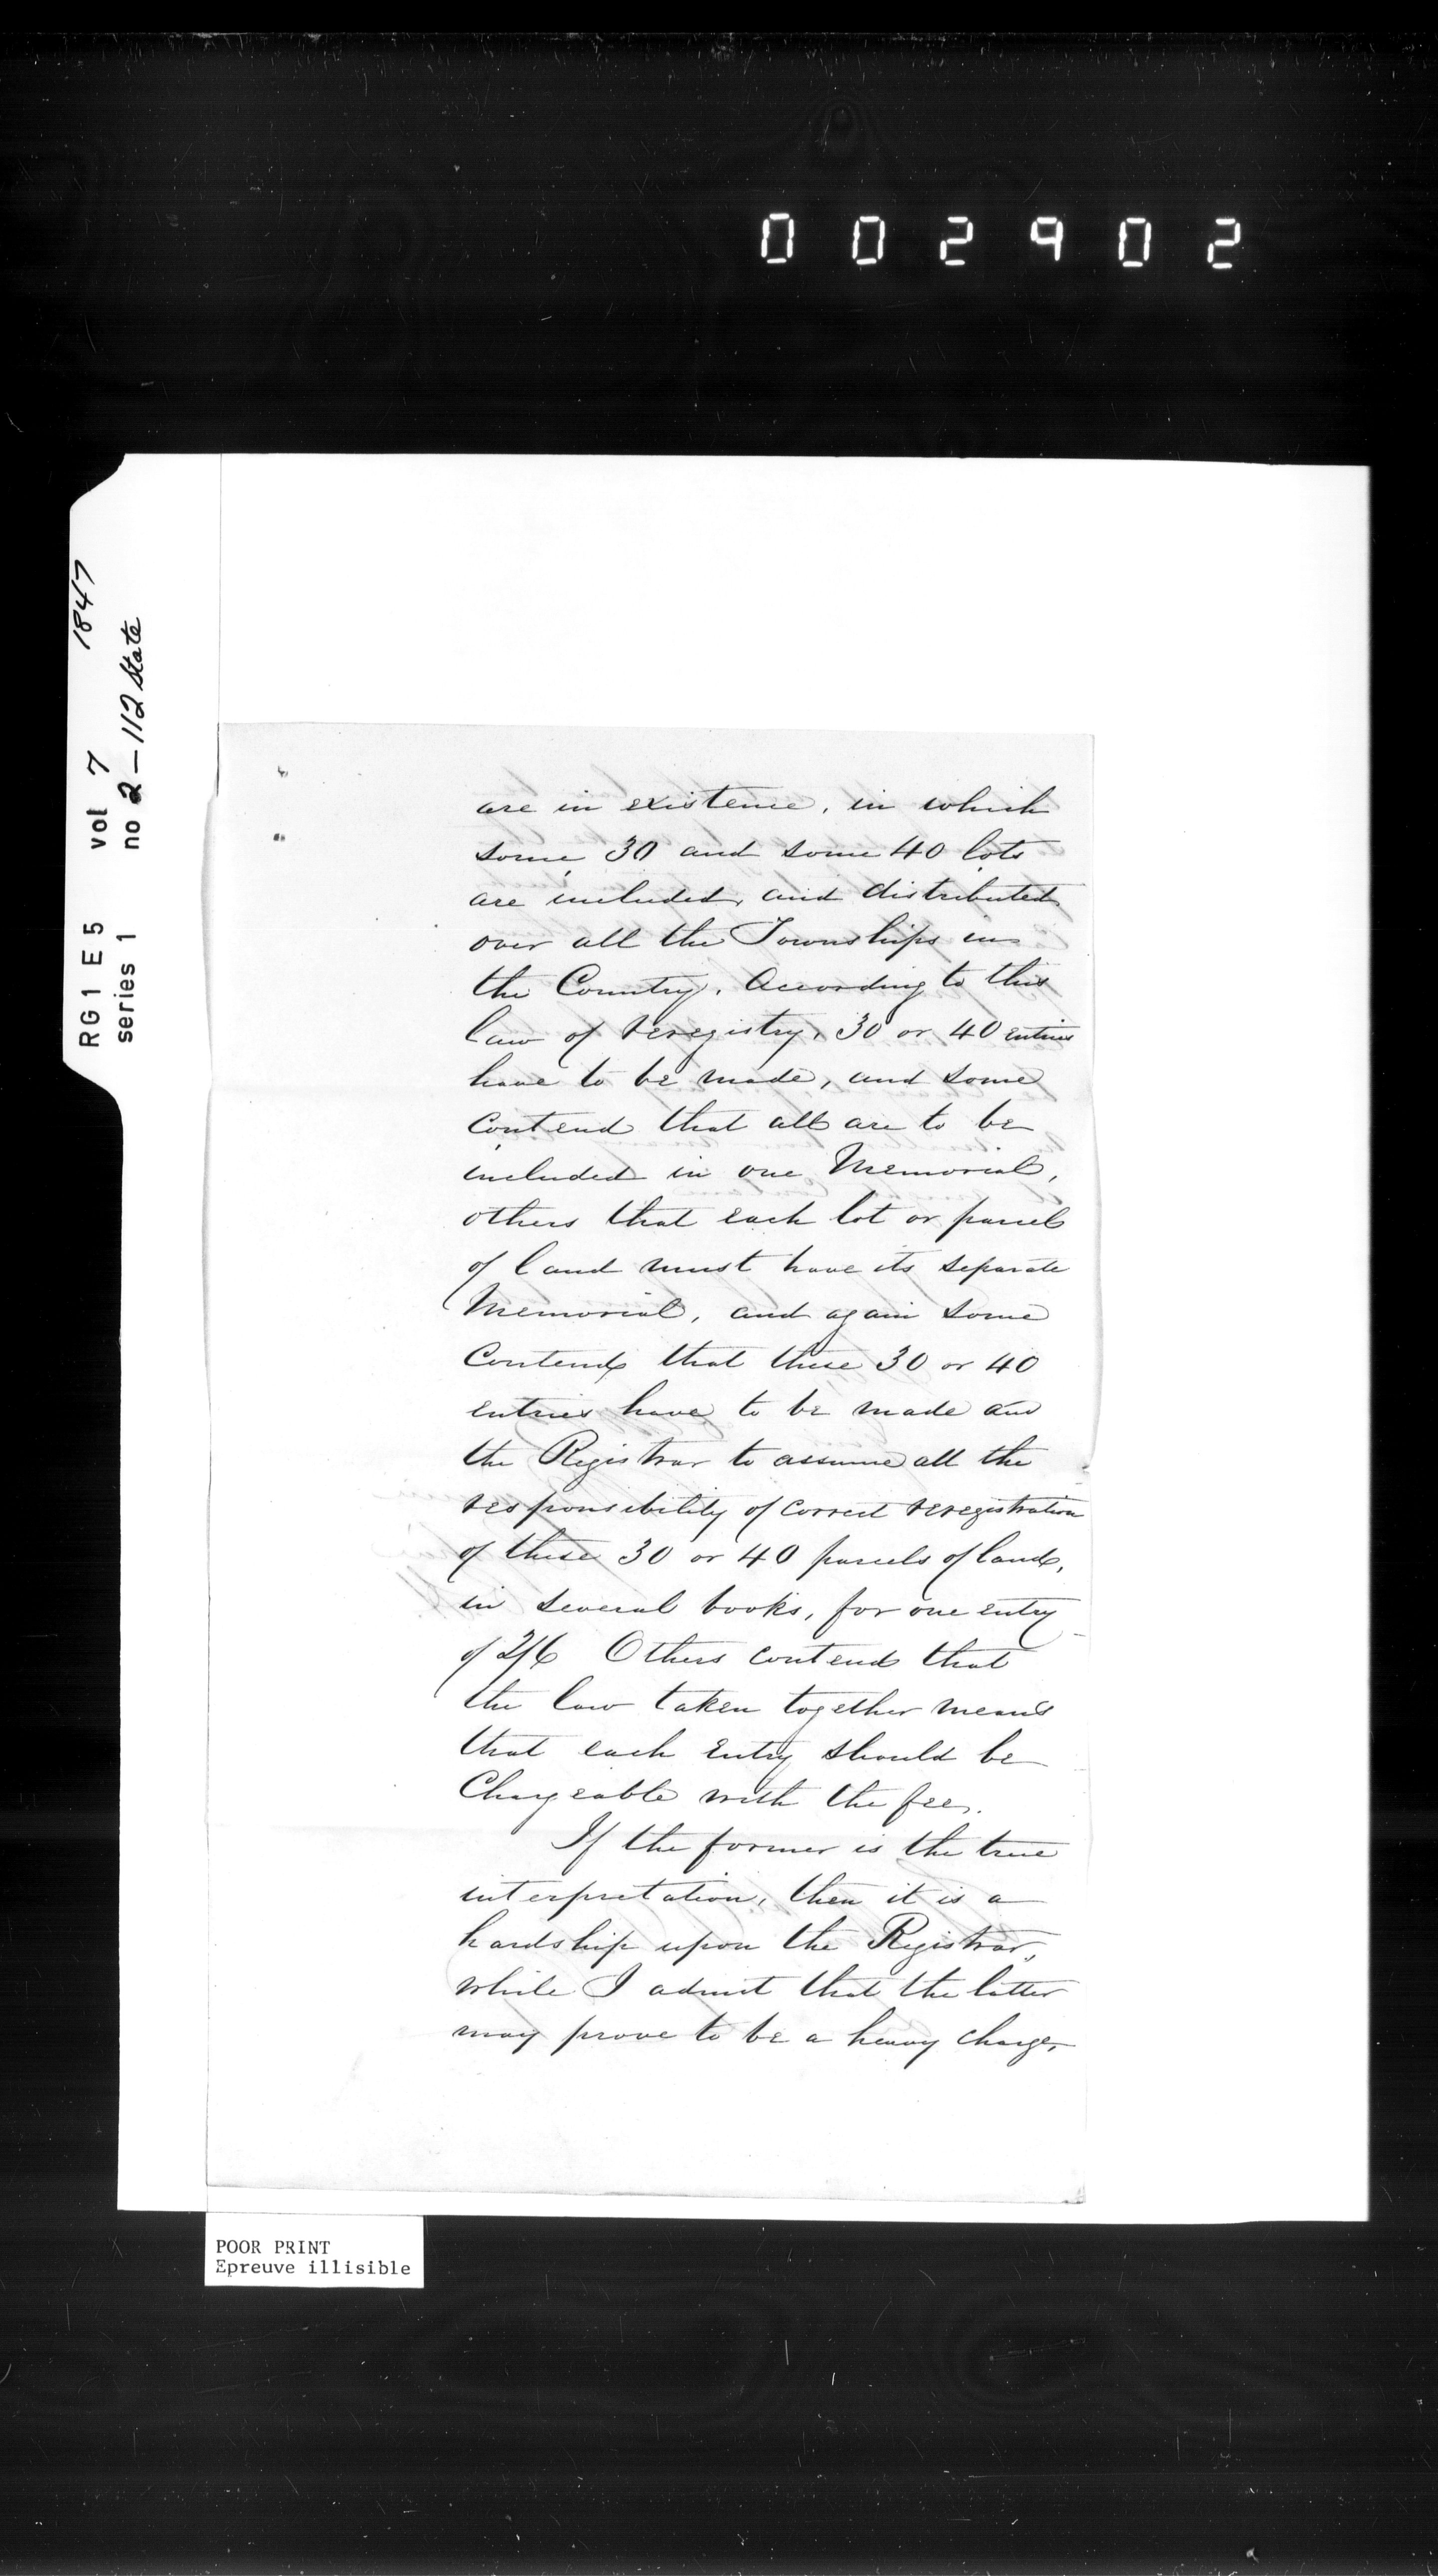 002902
RG1 E5 vol 7 1847
series 1 no 2-112 State
are in existence, in which
some 30 and some 40 lots
are included, and distributed
over all the Townships in
the Country. According to this
law of reregistry, 30 or 40 entries
have to be made, and some
contend that all are to be
included in one Memorial,
others that each lot or parcel
of land must have its separate
Memorial, and again some
Contend that these 30 or 40
entries have to be made and
the Registrar to assume all the
responsibility of correct reregistration
of these 30 or 40 parcels of land,
in several books, for one entry
of 2/6 Others contend that
the law taken together means
that each Entry should be
Chargeable with the fee.
If the former is the true
interpretation, then it is a
hardship upon the Registrar,
while I admit that the latter
may prove to be a heavy charge,
POOR PRINT
Epreuve illisible